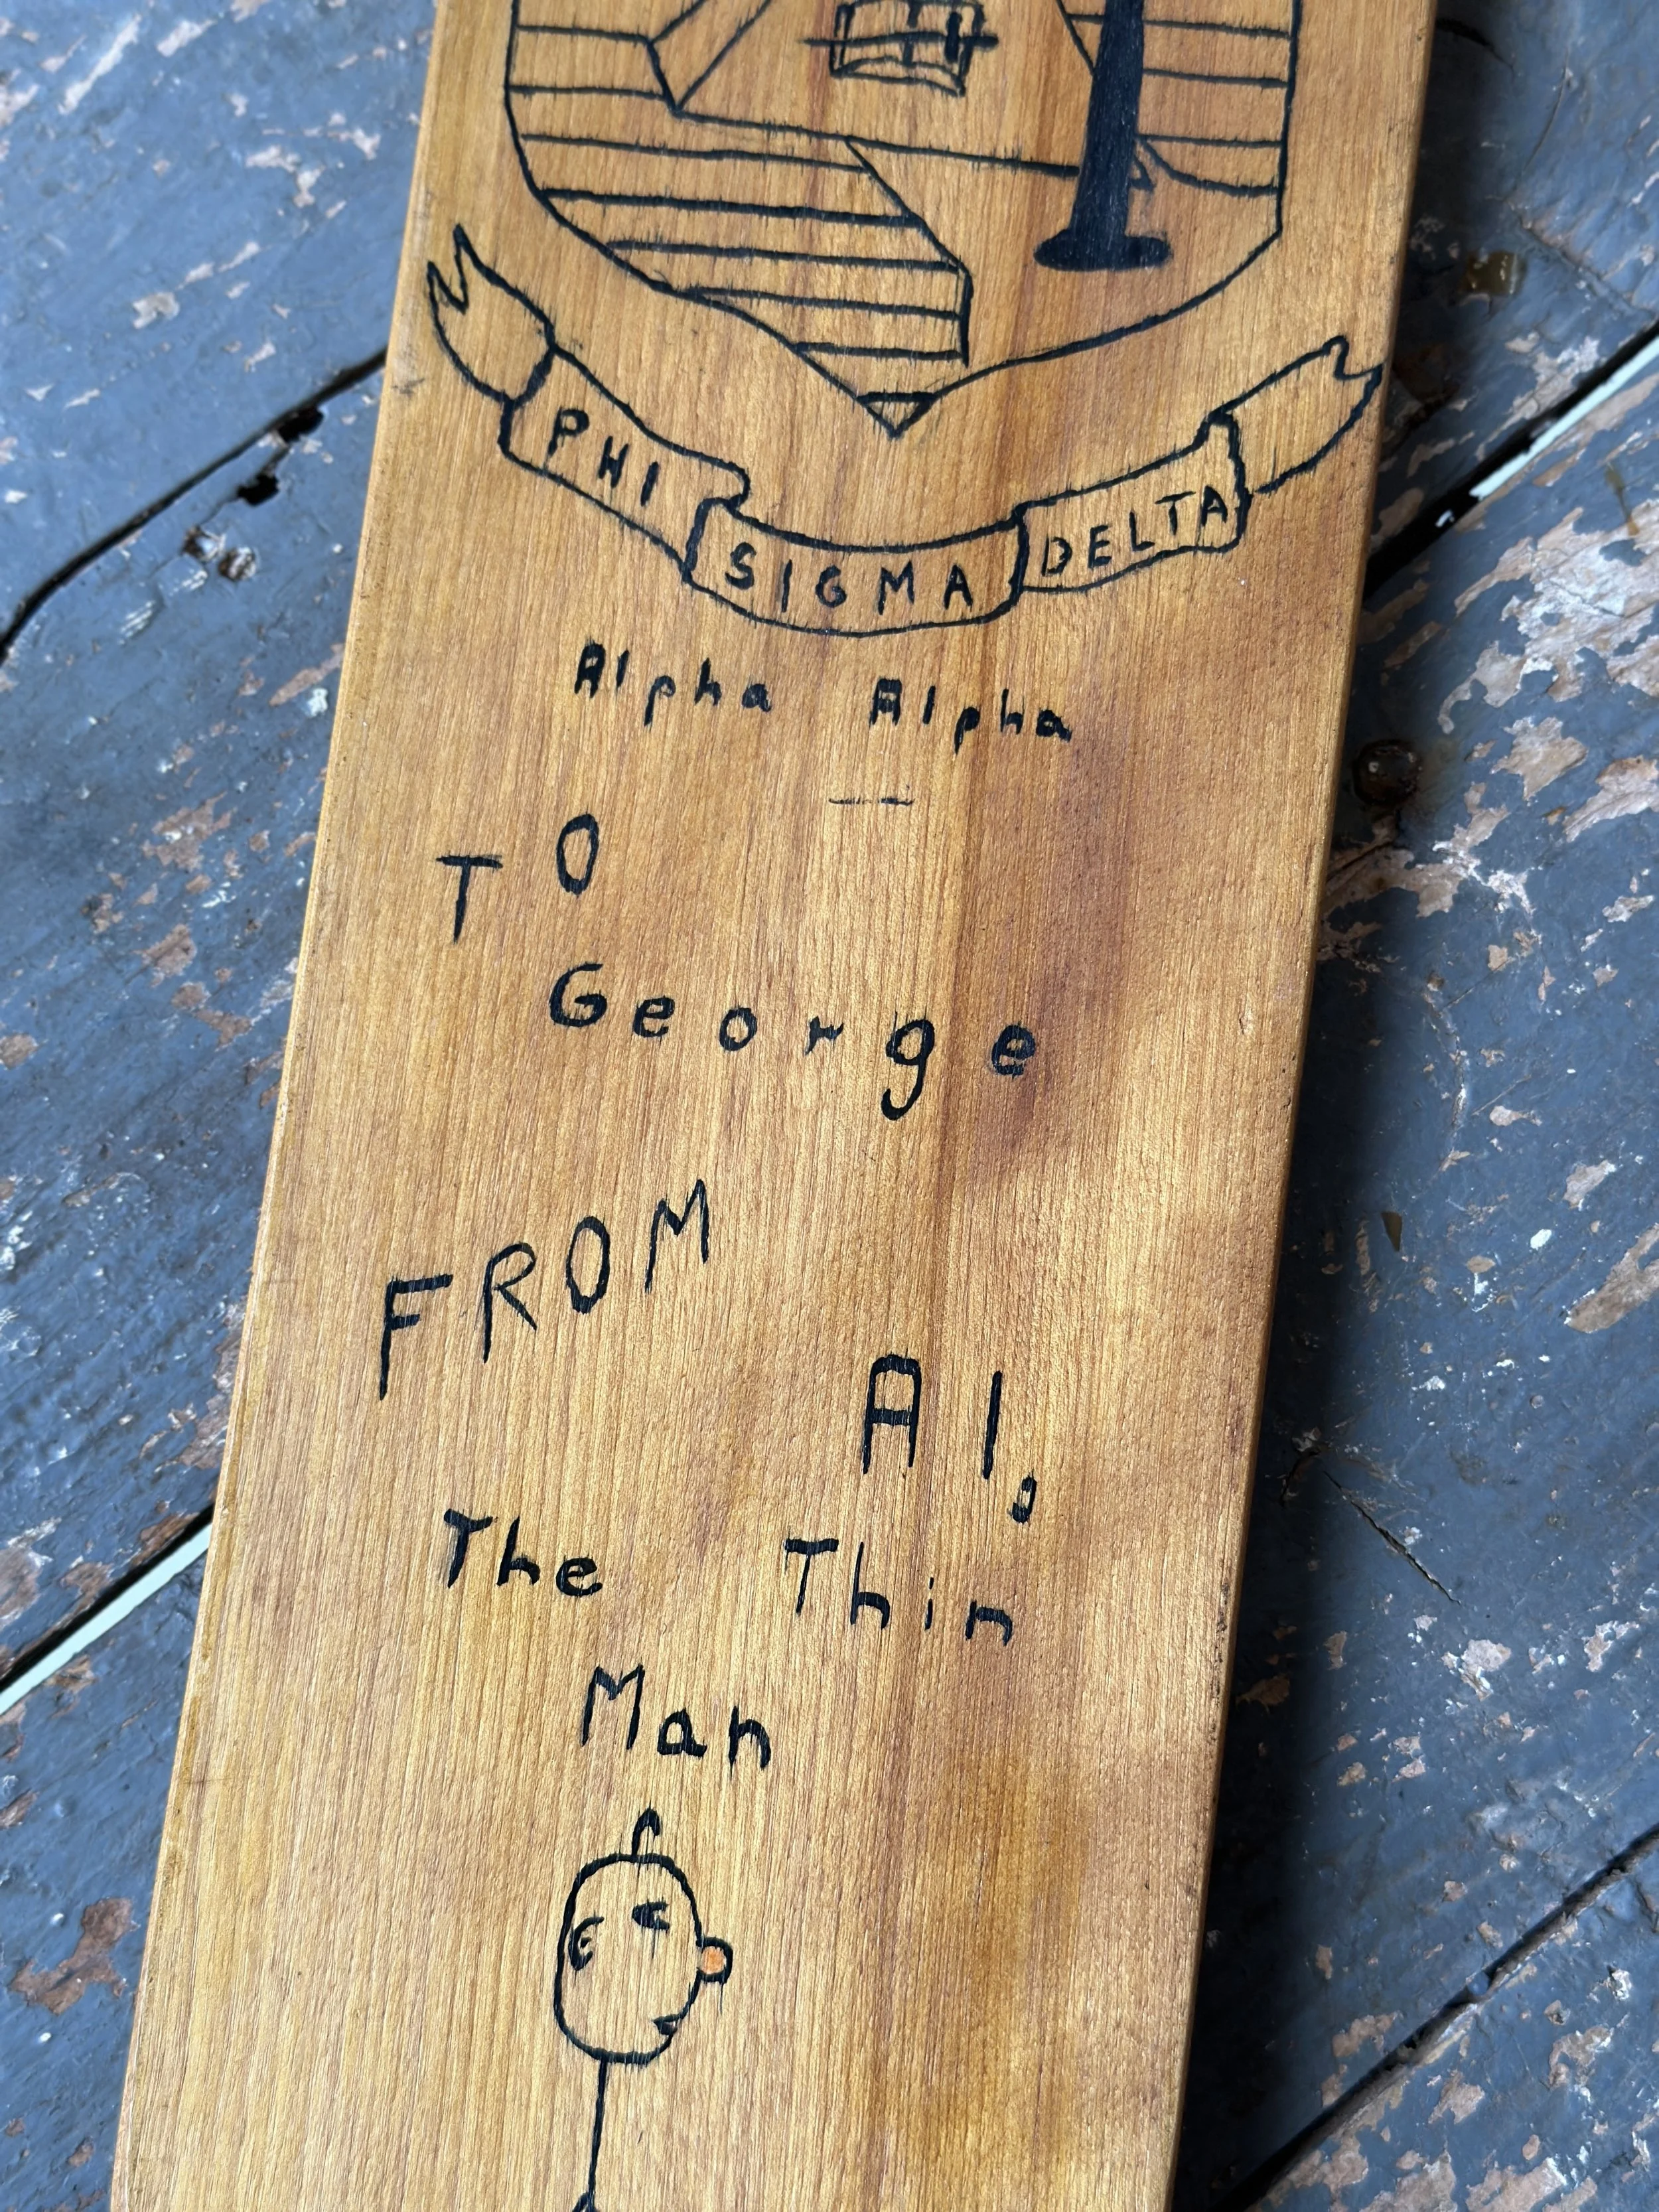 PHI SIGMA DELTA
Alpha Alpha
TO
George
FROM
Al,
The Thin
Man